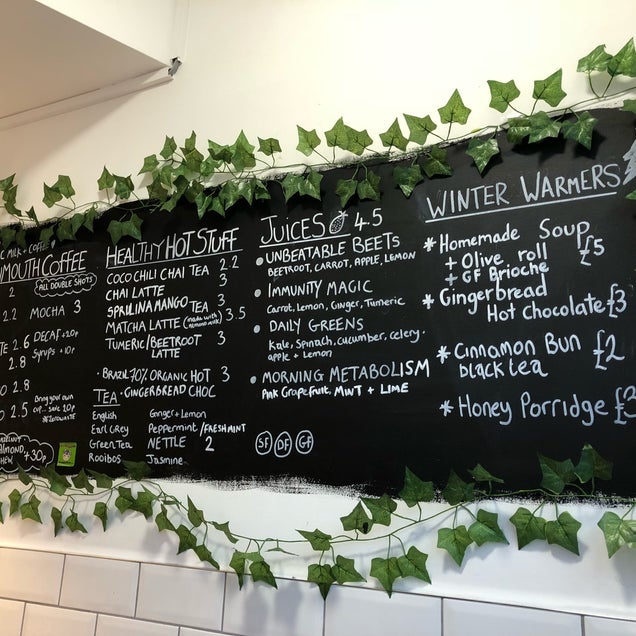 MILK + COFFEE
MOUTH COFFEE
ALL DOUBLE SHOTS
2
2.2
MOCHA 3
2.6
DECAF +20p
2.8
Syrups +10p
2.8
2.5
Bring your own
cup... save 20p
ALMOND,
+30p
HEALTHY HOT STUFF
COCO CHILI CHAI TEA 2.2
CHAI LATTE 3
SPRILINA MANGO TEA 3
MATCHA LATTE (made with almond milk) 3.5
TUMERIC/BEETROOT
LATTE 3
• BRAZIL 70% ORGANIC HOT 3
TEA • GINGERBREAD CHOC
English Ginger + Lemon
Earl Grey Peppermint/FRESH MINT
Green Tea NETTLE 2
Rooibos Jasmine
JUICES 4.5
• UNBEATABLE BEETS
BEETROOT, CARROT, APPLE, LEMON
• IMMUNITY MAGIC
Carrot, Lemon, Ginger, Tumeric
• DAILY GREENS
Kale, Spinach, cucumber, celery.
apple + Lemon
• MORNING METABOLISM
Pink Grapefruit, MINT + LIME
SF DF GF
WINTER WARMERS
* Homemade Soup
+ Olive roll £5
+ GF Brioche
* Gingerbread
Hot Chocolate £3
* Cinnamon Bun £2
black tea
* Honey Porridge